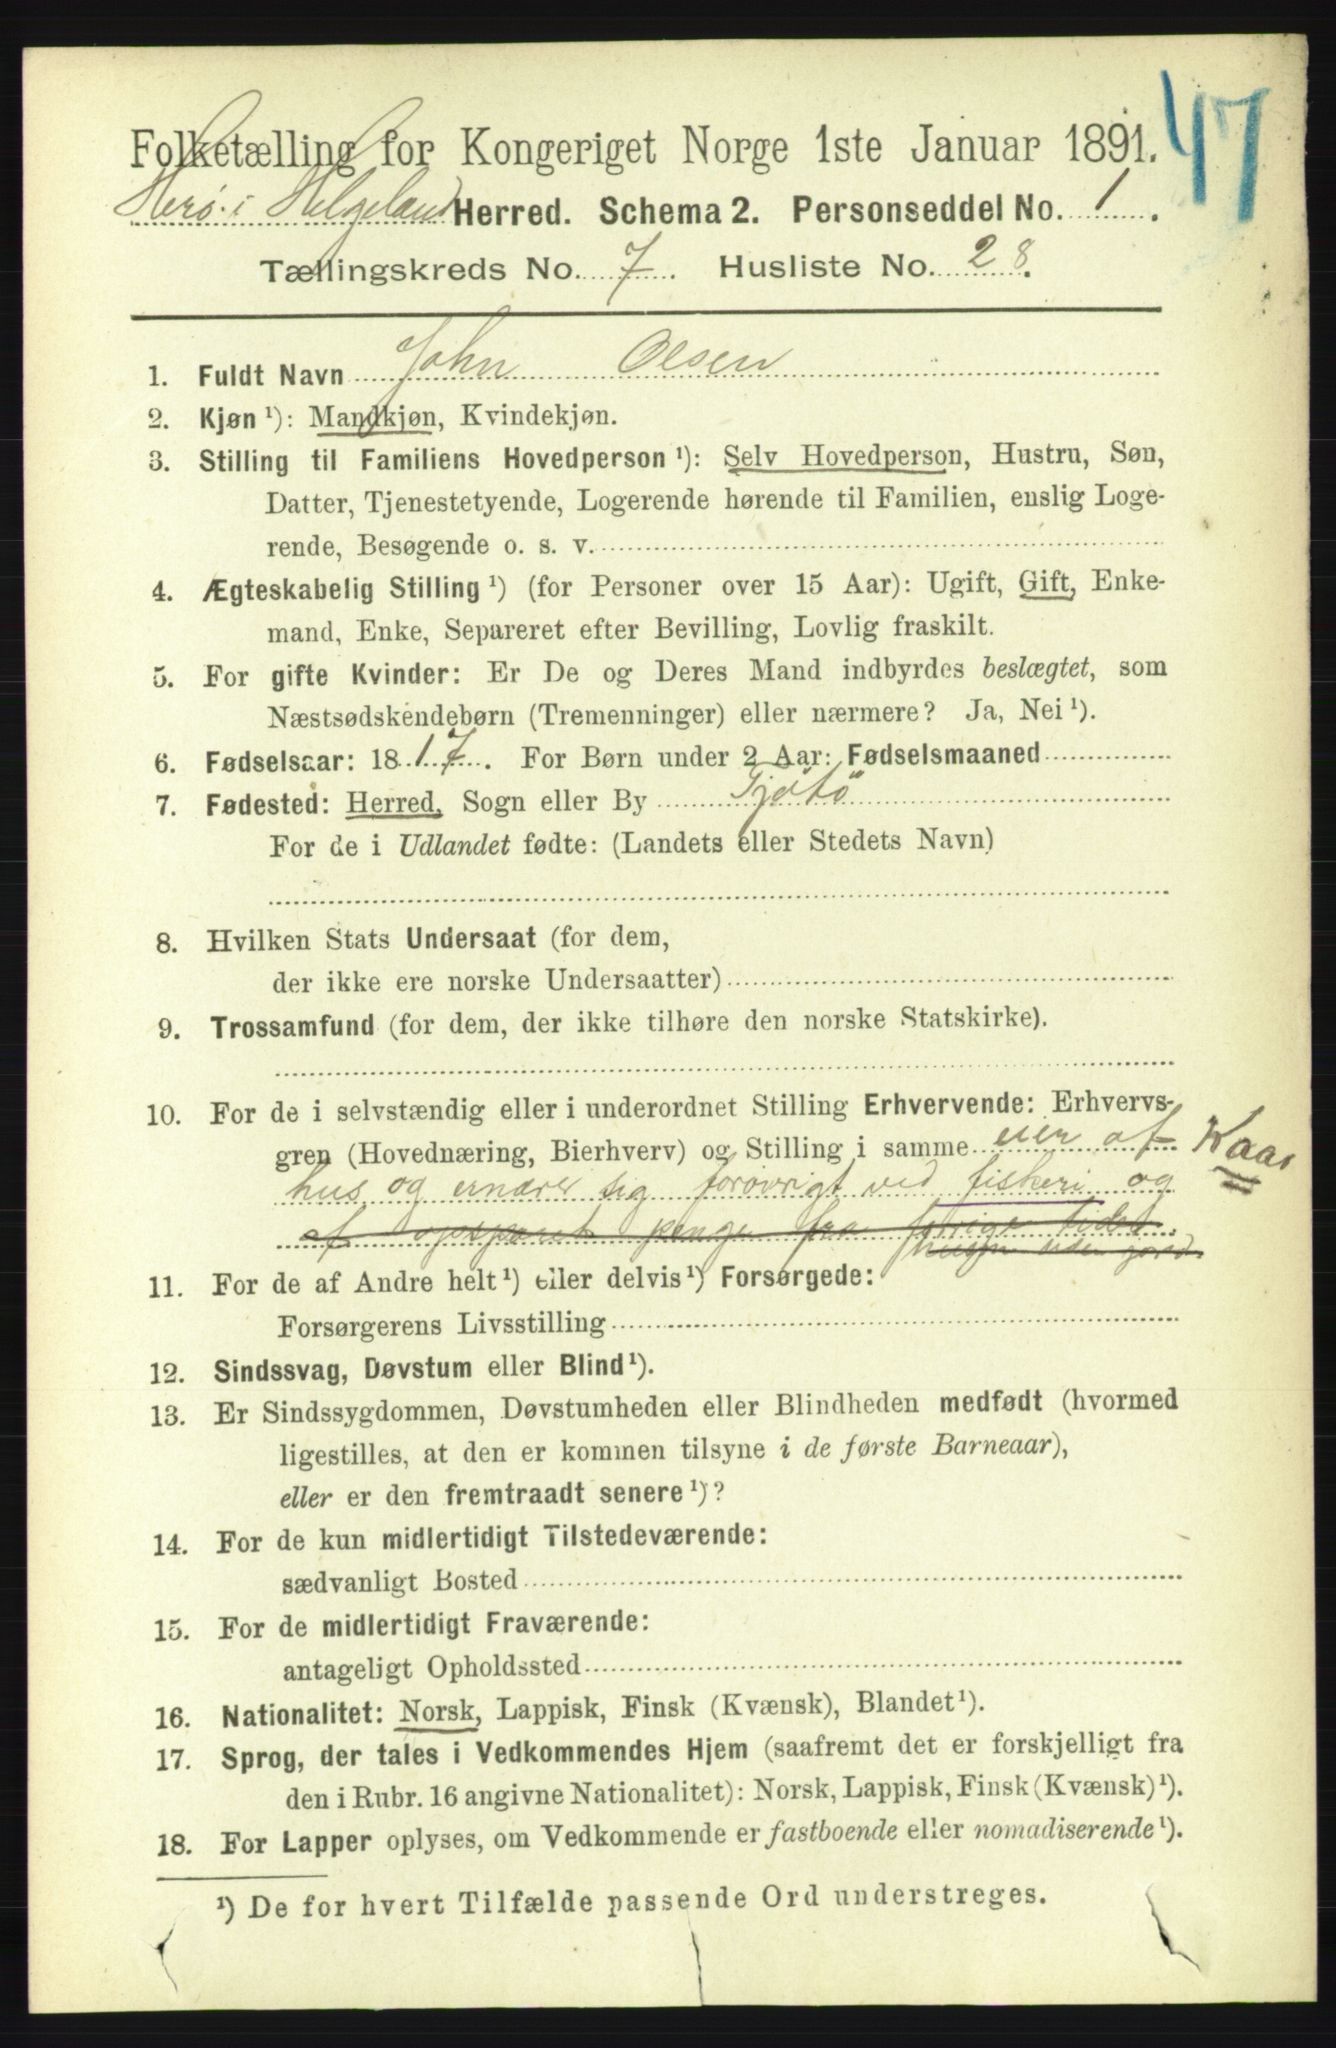 47
Folketælling for Kongeriget Norge 1ste Januar 1891.
Herø i Helgeland Herred. Schema 2. Personseddel No. 1.
Tællingskreds No. 7. Husliste No. 28.
1. Fuldt Navn John Olsen
2. Kjøn ¹): Mandkjøn, Kvindekjøn.
3. Stilling til Familiens Hovedperson ¹): Selv Hovedperson, Hustru, Søn,
Datter, Tjenestetyende, Logerende hørende til Familien, enslig Loge-
rende, Besøgende o. s. v.
4. Ægteskabelig Stilling ¹) (for Personer over 15 Aar): Ugift, Gift, Enke-
mand, Enke, Separeret efter Bevilling, Lovlig fraskilt.
5. For gifte Kvinder: Er De og Deres Mand indbyrdes beslægtet, som
Næstsødskendebørn (Tremenninger) eller nærmere? Ja, Nei ¹).
6. Fødselsaar: 1817. For Børn under 2 Aar: Fødselsmaaned
7. Fødested: Herred, Sogn eller By Tjøtö
For de i Udlandet fødte: (Landets eller Stedets Navn)
8. Hvilken Stats Undersaat (for dem,
der ikke ere norske Undersaatter)
9. Trossamfund (for dem, der ikke tilhøre den norske Statskirke).
10. For de i selvstændig eller i underordnet Stilling Erhvervende: Erhvervs-
gren (Hovednæring, Bierhverv) og Stilling i samme eier af Kaar
hus og ernærer sig forøvrigt ved fiskeri og
af opsparet penge fra forrige tider.
husm uden jord
11. For de af Andre helt ¹) eller delvis ¹) Forsørgede:
Forsørgerens Livsstilling
12. Sindssvag, Døvstum eller Blind ¹).
13. Er Sindssygdommen, Døvstumheden eller Blindheden medfødt (hvormed
ligestilles, at den er kommen tilsyne i de første Barneaar),
eller er den fremtraadt senere ¹)?
14. For de kun midlertidigt Tilstedeværende:
sædvanligt Bosted
15. For de midlertidigt Fraværende:
antageligt Opholdssted
16. Nationalitet: Norsk, Lappisk, Finsk (Kvænsk), Blandet ¹).
17. Sprog, der tales i Vedkommendes Hjem (saafremt det er forskjelligt fra
den i Rubr. 16 angivne Nationalitet): Norsk, Lappisk, Finsk (Kvænsk) ¹).
18. For Lapper oplyses, om Vedkommende er fastboende eller nomadiserende ¹).
¹) De for hvert Tilfælde passende Ord understreges.